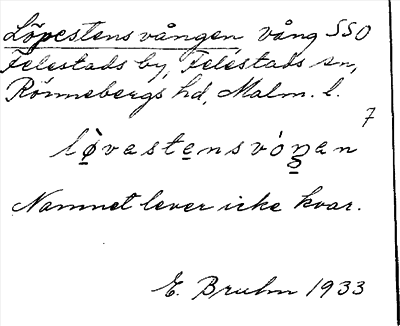 Löpestensvången vång SSO
Felestads by, Felestads sn,
Rönnebergs hd, Malm. l.
7
lø̠vaste̠nsvóŋ̠an
Namnet lever icke kvar.
E. Bruhn 1933